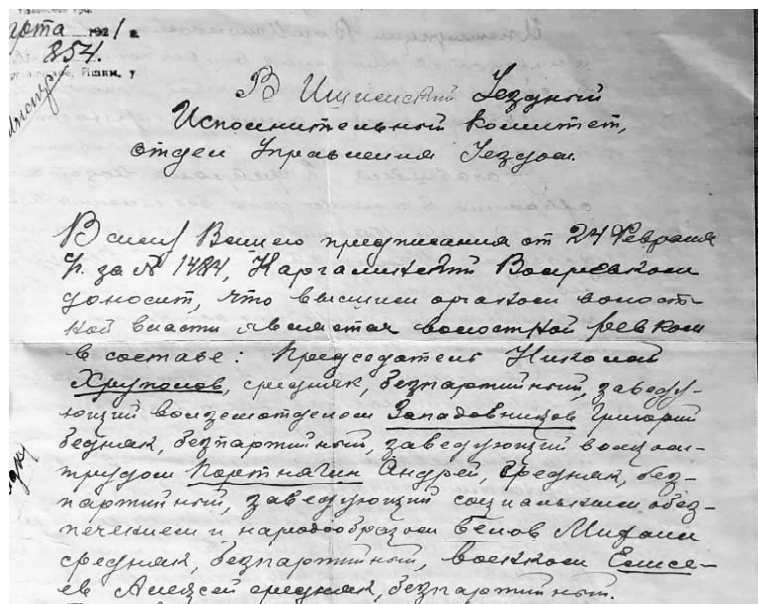 арта 1921 г.
354.
Ишим. у
В Ишимский Уездный
Исполнительный Комитет,
отдел Управления Уездом.
В силу Вашего предписания от 24 Февраля
с/г. за № 1484, Каргалинский Волревком
доносит, что высшим органом волост-
ной власти является волостной ревком
в составе: Председатель Николай
Хруполов, средняк, безпартийный, заведу-
ющий волземотделом Западовников Григорий
бедняк, безпартийный, заведующий волком-
трудом Портнягин Андрей, средняк, без-
партийный, заведующий социальным обез-
печением и народобразом Белов Михаил
средняк, безпартийный, военком Елисе-
ев Алексей средняк, безпартийный.